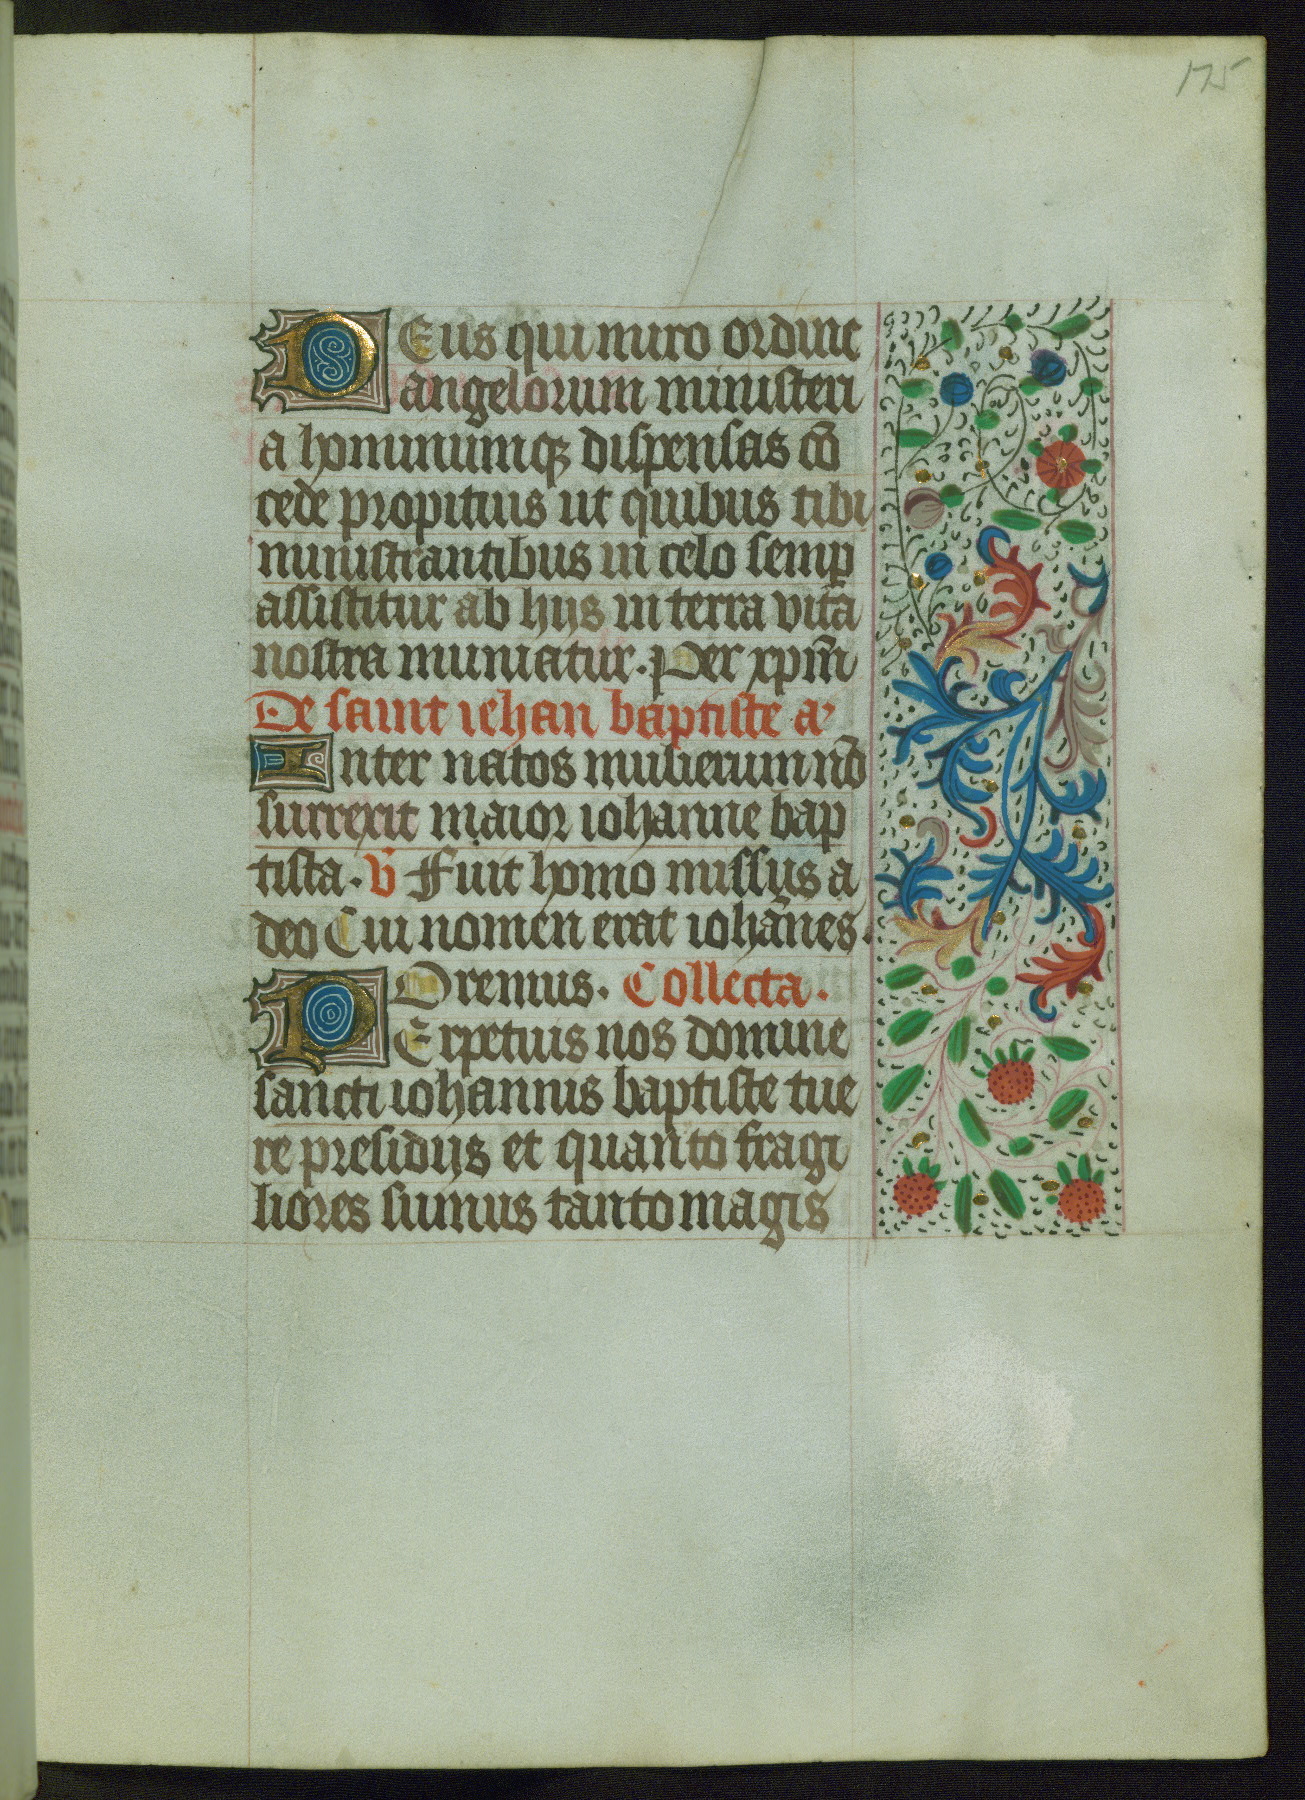 175
Deus qui miro ordine
angelorum ministeri
a hominumqꝫ dispensas cō
cede propitius ut quibus tibi
ministrantibus in celo semꝑ
assistitur ab hijs in terra vita
nostra muniatur. Per xpm̄
De saint iehan baptiste a᷒
Inter natos mulierum nō
surrexit maior iohanne bap
tista. V̄ Fuit homo missus a
deo Cui nomen erat iohānes.
Oremus. Collecta.
Perpetuis nos domine
sancti iohannis baptiste tue
re presidijs et quanto fragi
liores sumus tanto magis